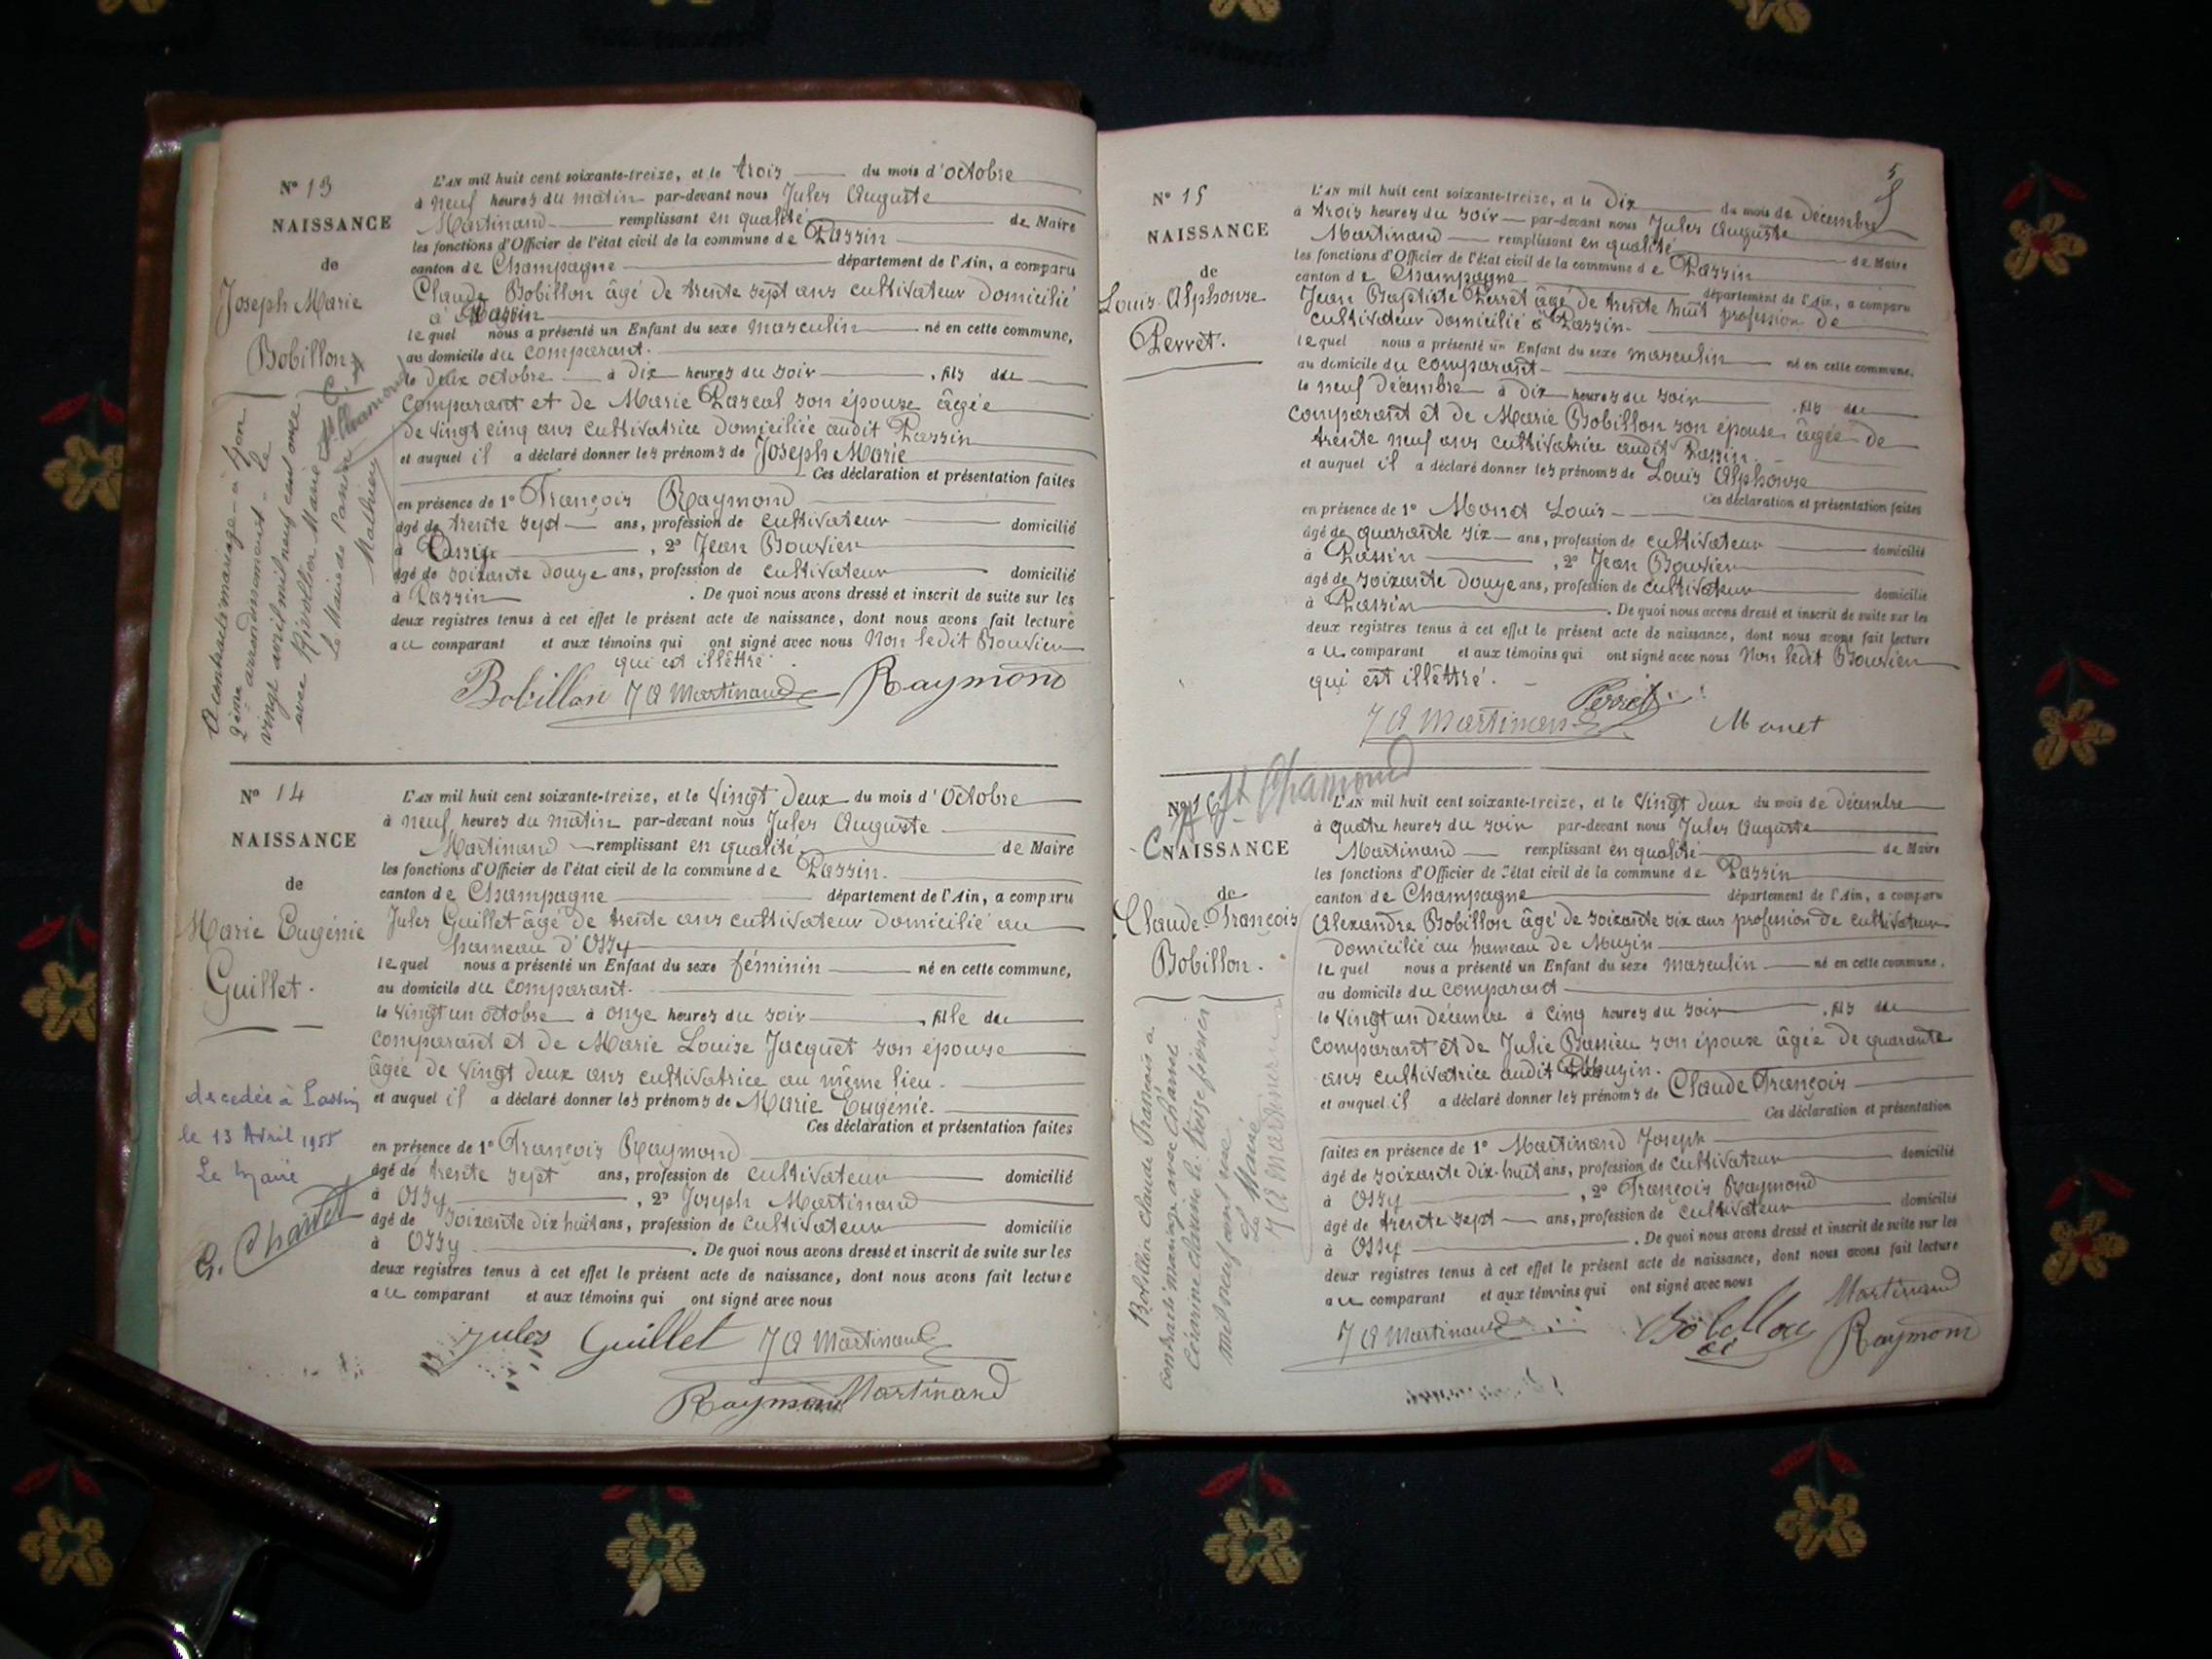 N° 13
NAISSANCE
de
Joseph Marie
Bobillon
A contracté mariage à Lyon
2ème arrondissement le
vingt avril mil neuf cent onze
avec Marie
Le Maire de Passin
Mathieu
L'AN mil huit cent soixante-treize, et le trois du mois d'octobre
à neuf heures du matin par-devant nous Jules Auguste
Martinand remplissant en qualité de Maire
les fonctions d'Officier de l'état civil de la commune de Passin
canton de Champagne département de l'Ain, a comparu
Claude Bobillon âgé de trente sept ans cultivateur domicilié
à
lequel nous a présenté un Enfant du sexe masculin né en cette commune,
au domicile du comparant.
le deux octobre à dix heures du soir, fils du
comparant et de Marie Pascal son épouse âgée
de vingt cinq ans cultivatrice domiciliée audit Passin
et auquel il a déclaré donner les prénoms de Joseph Marie
Ces déclaration et présentation faites
en présence de 1° François Raymond
âgé de trente sept ans, profession de cultivateur domicilié
à, 2° Jean Bouvier
âgé de soixante douze ans, profession de cultivateur domicilié
à Passin. De quoi nous avons dressé et inscrit de suite sur les
deux registres tenus à cet effet le présent acte de naissance, dont nous avons fait lecture
au comparant et aux témoins qui ont signé avec nous Non ledit Bouvier
qui est illettré.
Bobillon J A Martinand Raymond
N° 14
NAISSANCE
de
Marie Eugénie
Guillet.
decedée à Passin
le 13 Avril 1955
Le Maire
L'AN mil huit cent soixante-treize, et le vingt deux du mois d'Octobre
à neuf heures du matin par-devant nous Jules Auguste
Martinand remplissant en qualité de Maire
les fonctions d'Officier de l'état civil de la commune de Passin.
canton de Champagne département de l'Ain, a comparu
Jules Guillet âgé de trente ans cultivateur domicilié au
hameau d'Ossy
lequel nous a présenté un Enfant du sexe féminin né en cette commune,
au domicile du comparant.
le vingt un octobre à onze heures du soir, fille du
comparant et de Marie Louise Jacquet son épouse
âgée de vingt deux ans cultivatrice au même lieu.
et auquel il a déclaré donner les prénoms de Marie Eugénie.
Ces déclaration et présentation faites
en présence de 1° François Raymond
âgé de trente sept ans, profession de cultivateur domicilié
à Ossy, 2° Joseph Martinand
âgé de soixante dix huit ans, profession de cultivateur domicilié
à Ossy. De quoi nous avons dressé et inscrit de suite sur les
deux registres tenus à cet effet le présent acte de naissance, dont nous avons fait lecture
au comparant et aux témoins qui ont signé avec nous
Jules Guillet J A Martinand
Raymond Martinand
5
N° 15
NAISSANCE
de
Louis Alphonse
Perret.
L'AN mil huit cent soixante-treize, et le Dix du mois de décembre
à trois heures du soir par-devant nous Jules Auguste
Martinand remplissant en qualité de Maire
les fonctions d'Officier de l'état civil de la commune de Passin
canton de Champagne département de l'Ain, a comparu
Jean Baptiste Perret âgé de trente huit profession de
cultivateur domicilié à Passin.
lequel nous a présenté un Enfant du sexe masculin né en cette commune,
au domicile du comparant
le neuf décembre à dix heures du soir, fils du
comparant et de Marie Bobillon son épouse âgée de
trente neuf ans cultivatrice audit Passin.
et auquel il a déclaré donner les prénoms de Louis Alphonse
Ces déclaration et présentation faites
en présence de 1° Monet Louis
âgé de quarante six ans, profession de cultivateur domicilié
à Passin, 2° Jean Bouvier
âgé de soixante douze ans, profession de cultivateur domicilié
à Passin. De quoi nous avons dressé et inscrit de suite sur les
deux registres tenus à cet effet le présent acte de naissance, dont nous avons fait lecture
au comparant et aux témoins qui ont signé avec nous Non ledit Bouvier
qui est illettré.
Perret
J A Martinand Monet
St Chamond
N° 16
NAISSANCE
de
Claude François
Bobillon.
Bobillon Claude François a
contracté mariage avec
le treize février
mil neuf cent
Le Maire
J A Martinand
L'AN mil huit cent soixante-treize, et le vingt deux du mois de décembre
à quatre heures du soir par-devant nous Jules Auguste
Martinand remplissant en qualité de Maire
les fonctions d'Officier de l'état civil de la commune de Passin
canton de Champagne département de l'Ain, a comparu
Alexandre Bobillon âgé de soixante six ans profession de cultivateur
domicilié au hameau de Muzin
lequel nous a présenté un Enfant du sexe masculin né en cette commune,
au domicile du comparant
le vingt un décembre à cinq heures du soir, fils du
comparant et de Julie Bassieu son épouse âgée de quarante
ans cultivatrice audit Muzin.
et auquel il a déclaré donner les prénoms de Claude François
Ces déclaration et présentation
faites en présence de 1° Martinand Joseph
âgé de soixante dix-huit ans, profession de cultivateur domicilié
à Ossy, 2° François Raymond
âgé de trente sept ans, profession de cultivateur domicilié
à Ossy. De quoi nous avons dressé et inscrit de suite sur les
deux registres tenus à cet effet le présent acte de naissance, dont nous avons fait lecture
au comparant et aux témoins qui ont signé avec nous
J A Martinand Bobillon Martinand
Raymond